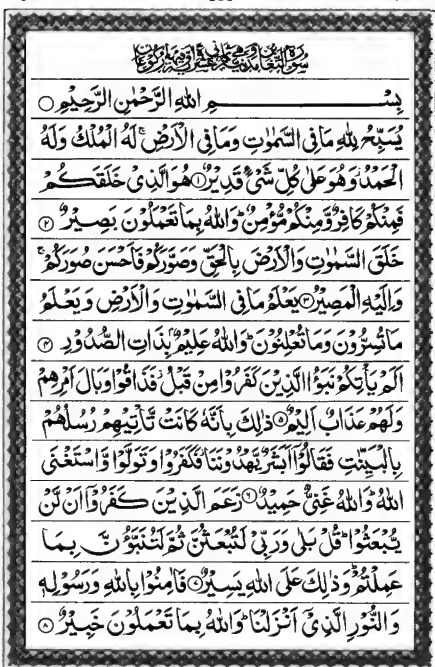 سورة التغابن مدنية وهي ثماني عشرة آية وفيها ركوعان
بِسْمِ اللهِ الرَّحْمٰنِ الرَّحِيْمِ ○
يُسَبِّحُ لِلّٰهِ مَا فِي السَّمٰوٰتِ وَمَا فِي الْاَرْضِ ۚ لَهُ الْمُلْكُ وَلَهُ
الْحَمْدُ ؗ وَهُوَ عَلٰى كُلِّ شَيْءٍ قَدِيْرٌ ① هُوَ الَّذِيْ خَلَقَكُمْ
فَمِنْكُمْ كَافِرٌ وَّمِنْكُمْ مُّؤْمِنٌ ؕ وَاللهُ بِمَا تَعْمَلُوْنَ بَصِيْرٌ ②
خَلَقَ السَّمٰوٰتِ وَالْاَرْضَ بِالْحَقِّ وَصَوَّرَكُمْ فَاَحْسَنَ صُوَرَكُمْ ۚ
وَاِلَيْهِ الْمَصِيْرُ ③ يَعْلَمُ مَا فِي السَّمٰوٰتِ وَالْاَرْضِ وَيَعْلَمُ
مَا تُسِرُّوْنَ وَمَا تُعْلِنُوْنَ ؕ وَاللهُ عَلِيْمٌۢ بِذَاتِ الصُّدُوْرِ ④
اَلَمْ يَاْتِكُمْ نَبَؤُا الَّذِيْنَ كَفَرُوْا مِنْ قَبْلُ ؗ فَذَاقُوْا وَبَالَ اَمْرِهِمْ
وَلَهُمْ عَذَابٌ اَلِيْمٌ ⑤ ذٰلِكَ بِاَنَّهٗ كَانَتْ تَّاْتِيْهِمْ رُسُلُهُمْ
بِالْبَيِّنٰتِ فَقَالُوْۤا اَبَشَرٌ يَّهْدُوْنَنَا ؗ فَكَفَرُوْا وَتَوَلَّوْا وَّاسْتَغْنَى
اللهُ ؕ وَاللهُ غَنِيٌّ حَمِيْدٌ ⑥ زَعَمَ الَّذِيْنَ كَفَرُوْۤا اَنْ لَّنْ
يُّبْعَثُوْا ؕ قُلْ بَلٰى وَرَبِّيْ لَتُبْعَثُنَّ ثُمَّ لَتُنَبَّؤُنَّ بِمَا
عَمِلْتُمْ ؕ وَذٰلِكَ عَلَى اللهِ يَسِيْرٌ ⑦ فَاٰمِنُوْا بِاللهِ وَرَسُوْلِهٖ
وَالنُّوْرِ الَّذِيْۤ اَنْزَلْنَا ؕ وَاللهُ بِمَا تَعْمَلُوْنَ خَبِيْرٌ ⑧